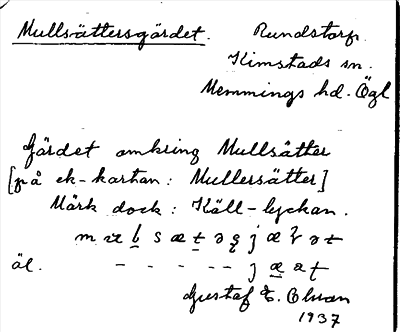 Mullsättersgärdet. Rundstorp.
Kimstads sn.
Memmings hd. Ögl
Gärdet omkring Mullsätter
[på ek-kartan: Mullersätter]
Märk dock: Käll-lyckan.
äl.
Gustaf E. Olson
1937